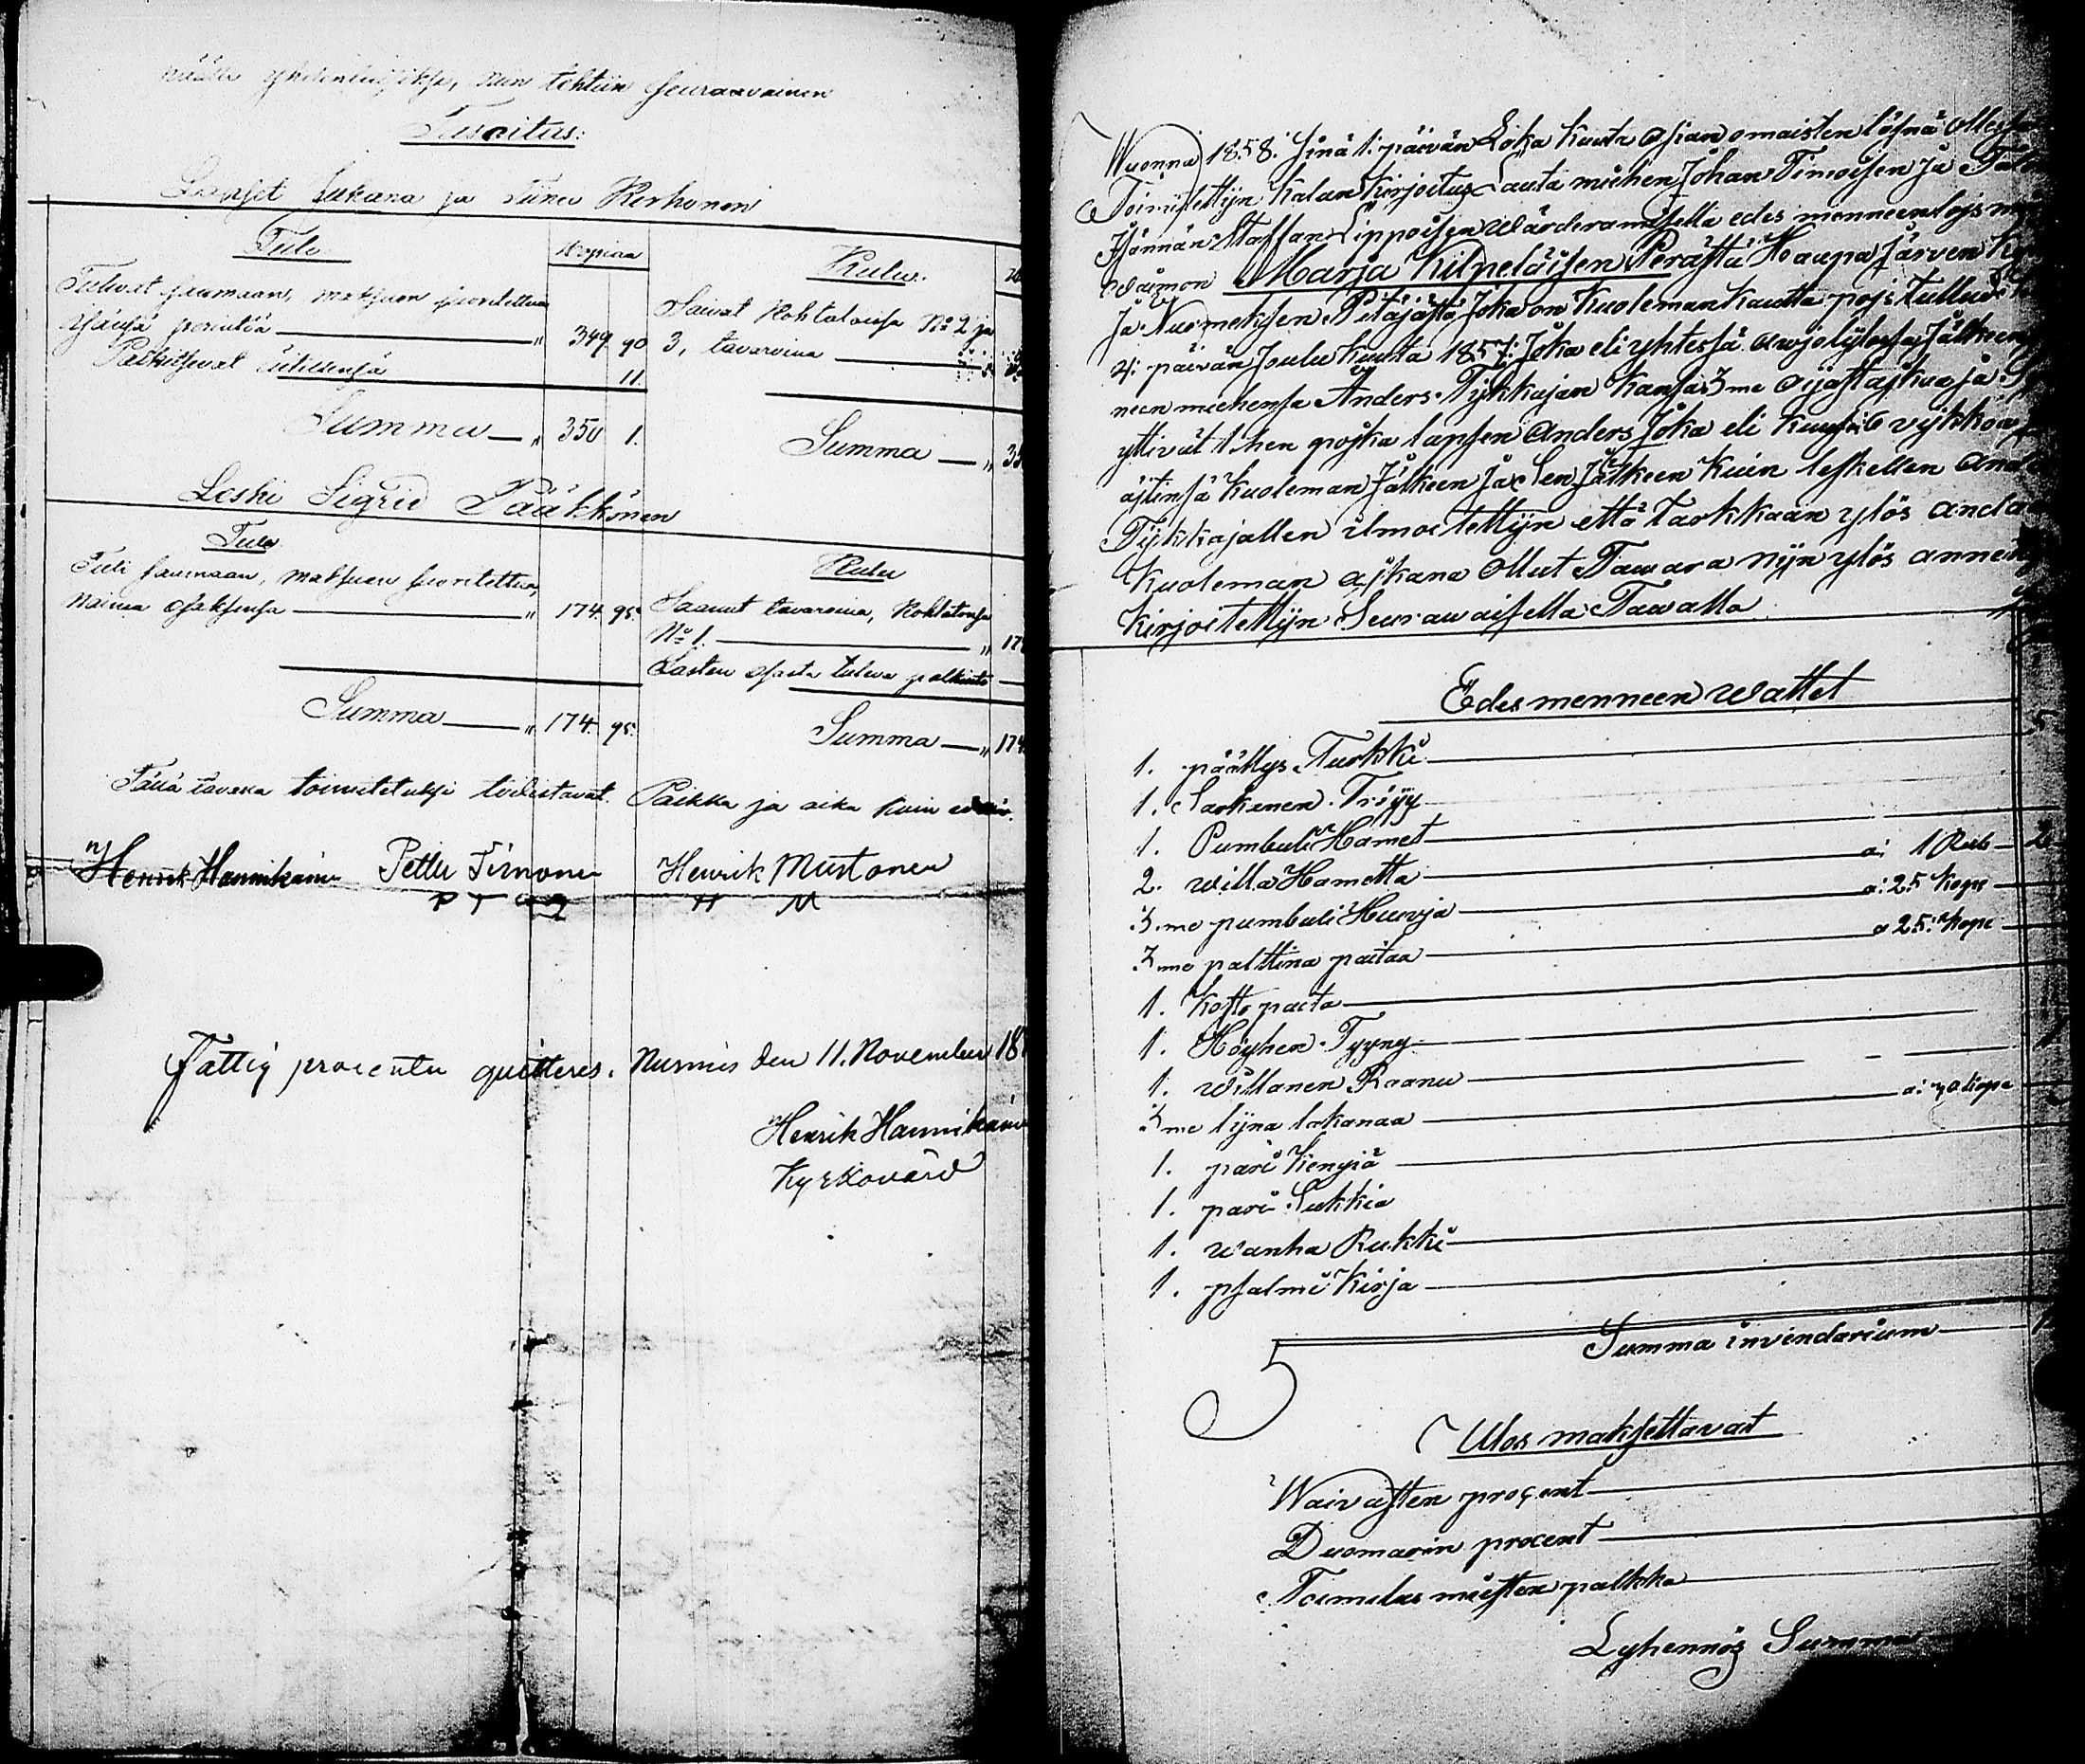 näille yhteentuisiksi, niin tehtiin seuraavainen
Tasaitus:
Lapset Juhana ja Stina Korhonen
Tulo
Kopiaa
Kulu.
Tulivat saamaan, maksuun suoritettua
Isänsä perintöä — „ 349 90
Palkitsevat äitillensä 11.
Summa — „ 350 1.
Saivat Kohtalonsa No 2 ja
3, tavaroina —
Summa — „ 35
Leski Sigrid Pääkkönen
Tulo
Kulu
Tuli saamaan, maksuun suoritettua,
naima osaksensa — „ 174 95.
Saanut tavaroina, Kohtalonsa
No 1. — „ 17
Lasten osasta tuleva palkinto —
Summa — „ 174. 95.
Summa — „ 174
Tällä tavalla toimitetuksi todistavat. Paikka ja aika kuin edellä.
Henrik Hannikainen Petter Timonen Henrik Mustonen
P T H M
Fattig procenten quitteres. Nurmis den 11. November 18
Henrik Hannikainen
Kyrkovärd
Wuonna 1858. sinä 1. päivän Loka kuuta asian omaisten läsnä ollessa
Toimitettijn Kalun Kirjoitus Lauta miehen Johan Timoisen ja Talon
Isännän Staffan Lippoisen wärderamisella edes menneen lojs mie
waimon Marja Kilpeläisen Perästä Haapa Järven Ky
Ja Nurmeksen Pitäjästä Joka on Kuoleman Kautta pojs tullut
4. päivän Joulu Kuuta 1857. Joka eli yhtessä awjolijtossa Jälkeen
neen miehensä Anders Tykkäjän Kansa 3 me ajastajkaa ja S
yttivät 1 hen pojka lapsen Anders Joka eli kuusi 6 vijkkoa
äjtinsä Kuoleman Jälkeen Ja Sen Jälkeen Kuin leskellen Ande
Tykkäjällen ilmoitettijn että tarkkaan ylös anda
Kuoleman ajkana ollut Tawara nijn ylös annett
Kirjoitettijn Seurawaisella Tawalla
Edes menneen wattet
1. päällys Turkki — 5
1. Sarkanen Tröyy
1. Pumbuli Hamet —
2. willa Hametta — a: 1 Rub — 2
3 me pumbuli Huivja — a: 25 Kope —
3 me palttina paitaa — a 25: Kope —
1. Kosto paita —
1. Höyhen Tyyny —
1. willanen Raanu —
3 me lijna lakanaa — Kope
1. pari Kengiä —
1. pari Sukkia
1. wanha Rukki —
1. psalmi Kirja —
Summa invendarium — 1
Ulos maksettavat
Waivasten proçent —
Duomarin procent —
Toimitus miesten palkka —
Lyhennös Summa